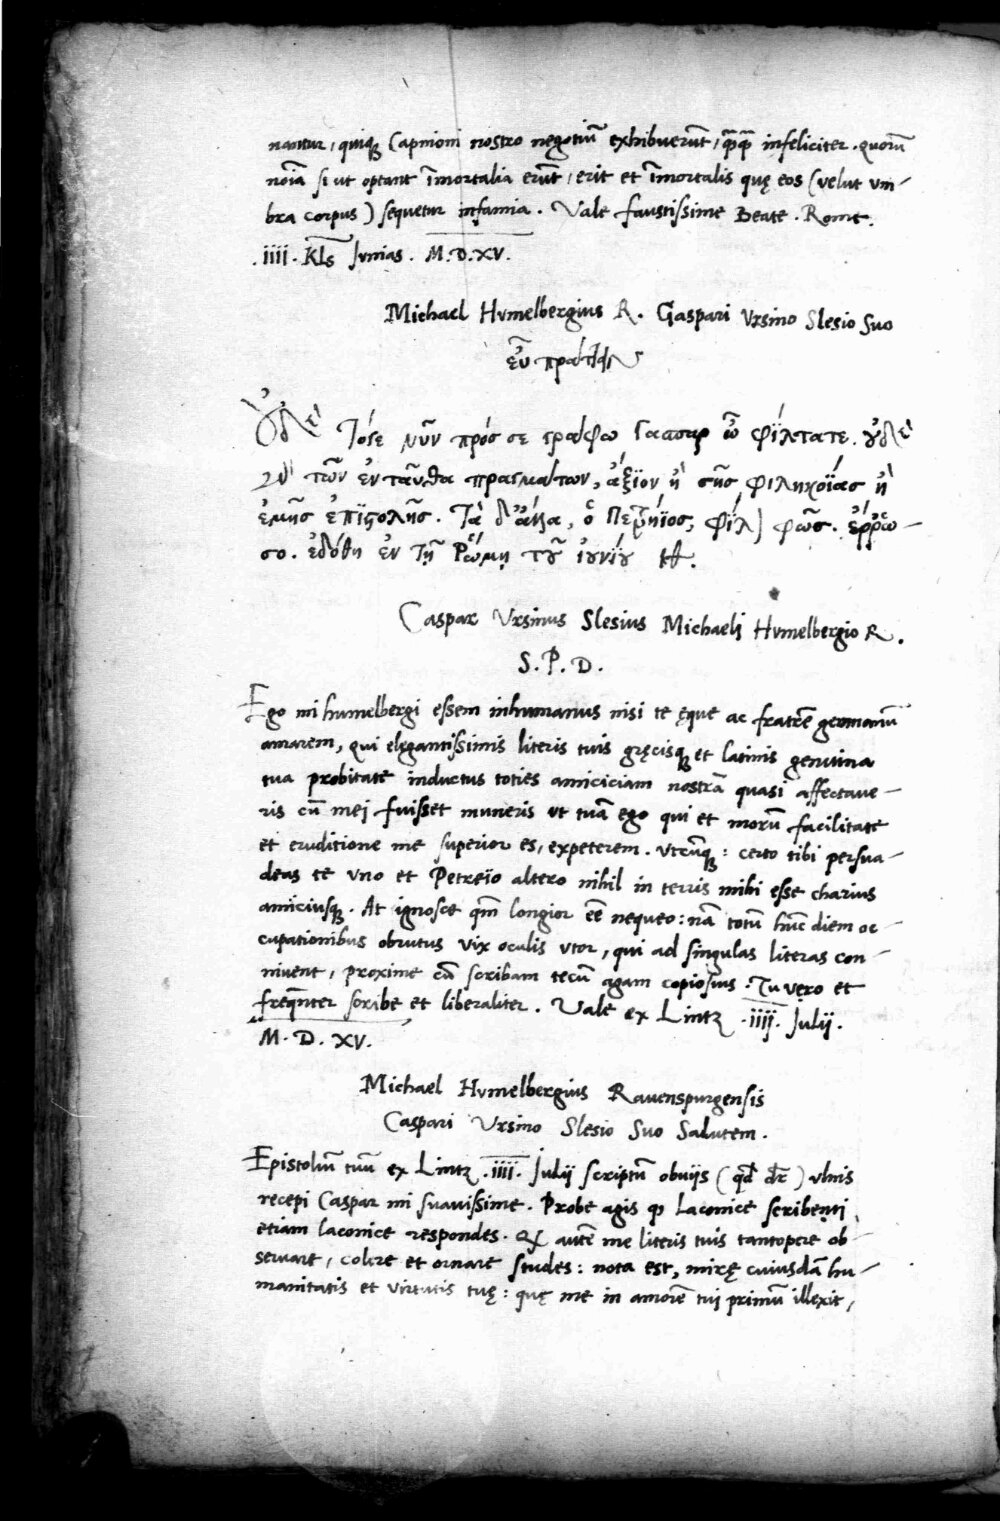 nantur, quiq; Capnioni nostro negotiũ exhibuerũt, q̃q̃ infeliciter. quorũ
noĩa si ut optant ĩmortalia erũt, erit et ĩmortalis quę eos (velut vm-
bra corpus) sequetur infamia. Vale faustissime Beate. Romę.
.iiii. Kls Junias. M.D.XV.
Michael Hvmelbergius R. Gaspari Vrsino Slesio suo
εὖ πράττειν
Οὐδὲν
τότε νῦν πρός σε γράφω Γασπαρ ὦ φίλτατε. οὐδὲν
τῶν ἐνταῦθα πραγμάτων, ἄξιον ἢ σῆς φιληκοΐας ἢ
ἐμῆς ἐπιστολῆς. Τὰ δ' ἄλλα, ὁ Πετρήϊος, φίλ φῶς. ἔρρω-
σο. ἐδόθη ἐν τῇ Ῥώμῃ τοῦ ἰουνίου
Caspar Vrsinus Slesius Michaeli Hvmelbergio R.
S.P.D.
Ego mi humelbergi essem inhumanus nisi te ęque ac fratrẽ germanũ
amarem, qui elegantissimis literis tuis gręcisq; et latinis genuina
tua probitate inductus toties amiciciam nostrã quasi affectaue-
ris cũ mei fuisset muneris ut tuã ego qui et morũ facilitate
et eruditione me superior es, expeterem. vtcũq; : certo tibi persua-
deas te vno et Petreio altero nihil in terris mihi esse charius
amiciusq;. At ignosce qm̃ longior eẽ nequeo: nã totũ hũc diem oc-
cupationibus obrutus vix oculis vtor, qui ad singulas literas con-
niuent, proxime cũ scribam tecũ agam copiosius. Tu vero et
freq̃nter scribe et liberaliter. Vale ex Lintz .iiij. Julij.
M.D.XV.
Michael Hvmelbergius Rauenspurgensis
Caspari Vrsino Slesio suo Salutem.
Epistoliũ tuũ ex Lintz .iiii. Julij scriptũ obuijs (qd̃ dr̃) vlnis
recepi Caspar mi suauissime. Probe agis q̃ Laconice scribenti
etiam laconice respondes. Q̃ autẽ me literis tuis tantopere ob-
seruare, colere et ornare studes: nota est, mirę cuiusdã hu-
manitatis et virtutis tuę: quę me in amorẽ tui primũ illexit,